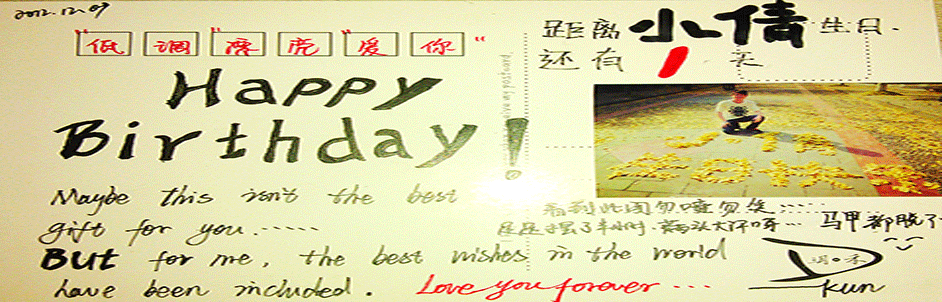 2012.12.09
"低调"麾虎"爱你"
Happy
Birthday!
Maybe this isn't the best
gift for you......
But for me, the best wishes in the world
have been included. Love you forever...
距离小倩生日.
还有1天
看到此图勿喷勿笑......
马甲都脱了
kun